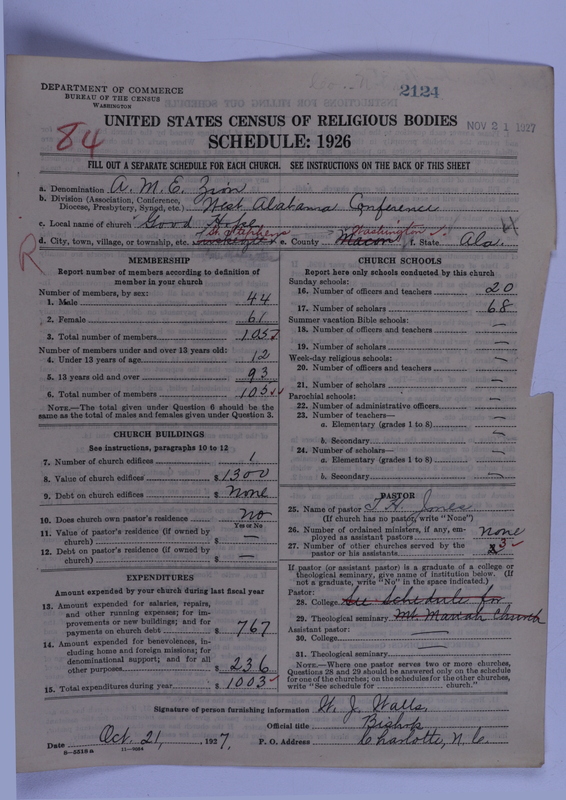 2124
DEPARTMENT OF COMMERCE
BUREAU OF THE CENSUS
WASHINGTON
UNITED STATES CENSUS OF RELIGIOUS BODIES
NOV 21 1927
84
SCHEDULE: 1926
FILL OUT A SEPARATE SCHEDULE FOR EACH CHURCH. SEE INSTRUCTIONS ON THE BACK OF THIS SHEET
a. Denomination A. M. E. Zion
b. Division (Association, Conference, Diocese, Presbytery, Synod, etc.) West Alabama Conference
c. Local name of church Good Hope
St. Stephens Washington
d. City, town, village, or township, etc. Tuskegee e. County Macon f. State Ala.
R
MEMBERSHIP
Report number of members according to definition of
member in your church
Number of members, by sex:
1. Male 44
2. Female 61
3. Total number of members 105
Number of members under and over 13 years old:
4. Under 13 years of age 12
5. 13 years old and over 93
6. Total number of members 105
NOTE.—The total given under Question 6 should be the
same as the total of males and females given under Question 3.
CHURCH BUILDINGS
See instructions, paragraphs 10 to 12
7. Number of church edifices 1
8. Value of church edifices $ 1300
9. Debt on church edifices $ None
10. Does church own pastor's residence No
Yes or No
11. Value of pastor's residence (if owned by
church) $ —
12. Debt on pastor's residence (if owned by
church) $ —
EXPENDITURES
Amount expended by your church during last fiscal year
13. Amount expended for salaries, repairs,
and other running expenses; for im-
provements or new buildings; and for
payments on church debt $ 767
14. Amount expended for benevolences, in-
cluding home and foreign missions; for
denominational support; and for all
other purposes $ 236
15. Total expenditures during year $ 1003
CHURCH SCHOOLS
Report here only schools conducted by this church
Sunday schools:
16. Number of officers and teachers 20
17. Number of scholars 68
Summer vacation Bible schools:
18. Number of officers and teachers —
19. Number of scholars —
Week-day religious schools:
20. Number of officers and teachers —
21. Number of scholars —
Parochial schools:
22. Number of administrative officers —
23. Number of teachers—
a. Elementary (grades 1 to 8) —
b. Secondary —
24. Number of scholars—
a. Elementary (grades 1 to 8) —
b. Secondary —
PASTOR
25. Name of pastor T. H. Jones
(If church has no pastor, write "None")
26. Number of ordained ministers, if any, em-
ployed as assistant pastors None
27. Number of other churches served by the
pastor or his assistants 3
If pastor (or assistant pastor) is a graduate of a college or
theological seminary, give name of institution below. (If
not a graduate, write "No" in the space indicated.)
Pastor:
28. College See Schedule for
29. Theological seminary Mt. Mariah Church
Assistant pastor:
30. College —
31. Theological seminary —
NOTE.—Where one pastor serves two or more churches,
Questions 28 and 29 should be answered only on the schedule
for one of the churches; on the schedules for the other churches,
write "See schedule for church."
Signature of person furnishing information W. J. Walls
Official title Bishop
Date Oct. 21, 1927. P. O. Address Charlotte, N. C.
8-5318a 11-9084